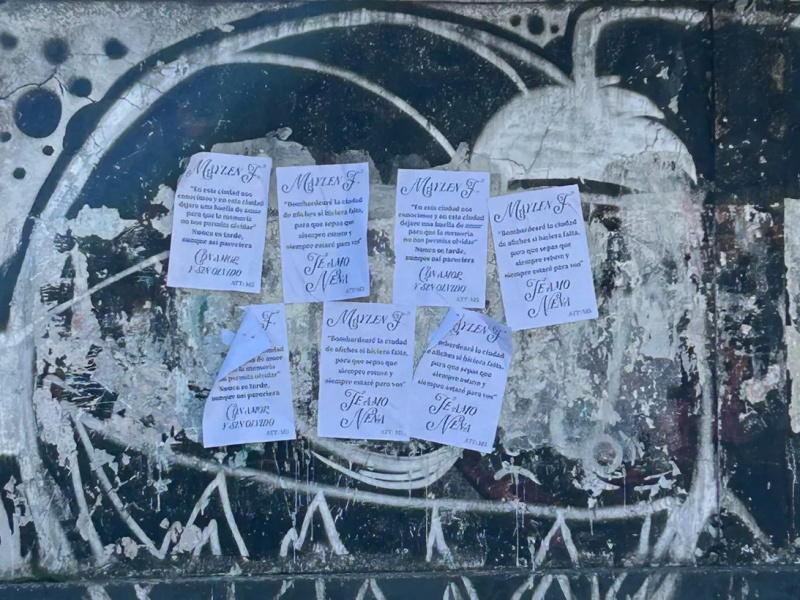 MAYLEN F.
"En esta ciudad nos
conocimos y en esta ciudad
dejare una huella de amor
para que la memoria
no nos permita olvidar"
Nunca es tarde,
aunque asi pareciera
CON AMOR
Y SIN OLVIDO
ATT: MJ
MAYLEN F.
"Bombardearé la ciudad
de afiches si hiciera falta,
para que sepas que
siempre estuve y
siempre estaré para vos"
TE AMO
NENA
ATT: MJ
MAYLEN F.
"En esta ciudad nos
conocimos y en esta ciudad
dejare una huella de amor
para que la memoria
no nos permita olvidar"
Nunca es tarde,
aunque asi pareciera
CON AMOR
Y SIN OLVIDO
ATT: MJ
MAYLEN F.
"Bombardearé la ciudad
de afiches si hiciera falta,
para que sepas que
siempre estuve y
siempre estaré para vos"
TE AMO
NENA
F.
ciudad
de amor
la memoria
permita olvidar"
Nunca es tarde,
aunque asi pareciera
CON AMOR
Y SIN OLVIDO
ATT: MJ
MAYLEN F.
"Bombardearé la ciudad
de afiches si hiciera falta,
para que sepas que
siempre estuve y
siempre estaré para vos"
TE AMO
NENA
ATT: MJ
AYLEN F.
la ciudad
afiches si hiciera falta,
para que sepas que
siempre estuve y
siempre estaré para vos"
TE AMO
NENA
ATT: MJ